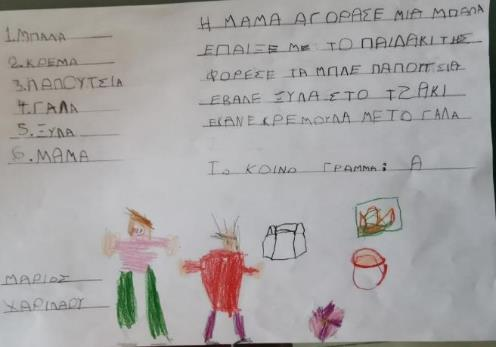 1. ΜΠΑΛΑ
2. ΚΡΕΜΑ
3. ΠΑΠΟΥΤΣΙΑ
4. ΓΑΛΑ
5. ΞΥΛΑ
6. ΜΑΜΑ
Η ΜΑΜΑ ΑΓΟΡΑΣΕ ΜΙΑ ΜΠΑΛΑ
ΕΠΑΙΞΕ ΜΕ ΤΟ ΠΑΙΔΑΚΙ ΤΗΣ
ΦΟΡΕΣΕ ΤΑ ΜΠΛΕ ΠΑΠΟΥΤΣΙΑ
ΕΒΑΛΕ ΞΥΛΑ ΣΤΟ ΤΖΑΚΙ
ΕΚΑΝΕ ΚΡΕΜΟΥΛΑ ΜΕ ΤΟ ΓΑΛΑ
ΤΟ ΚΟΙΝΟ ΓΡΑΜΜΑ: Α
ΜΑΡΙΟΣ